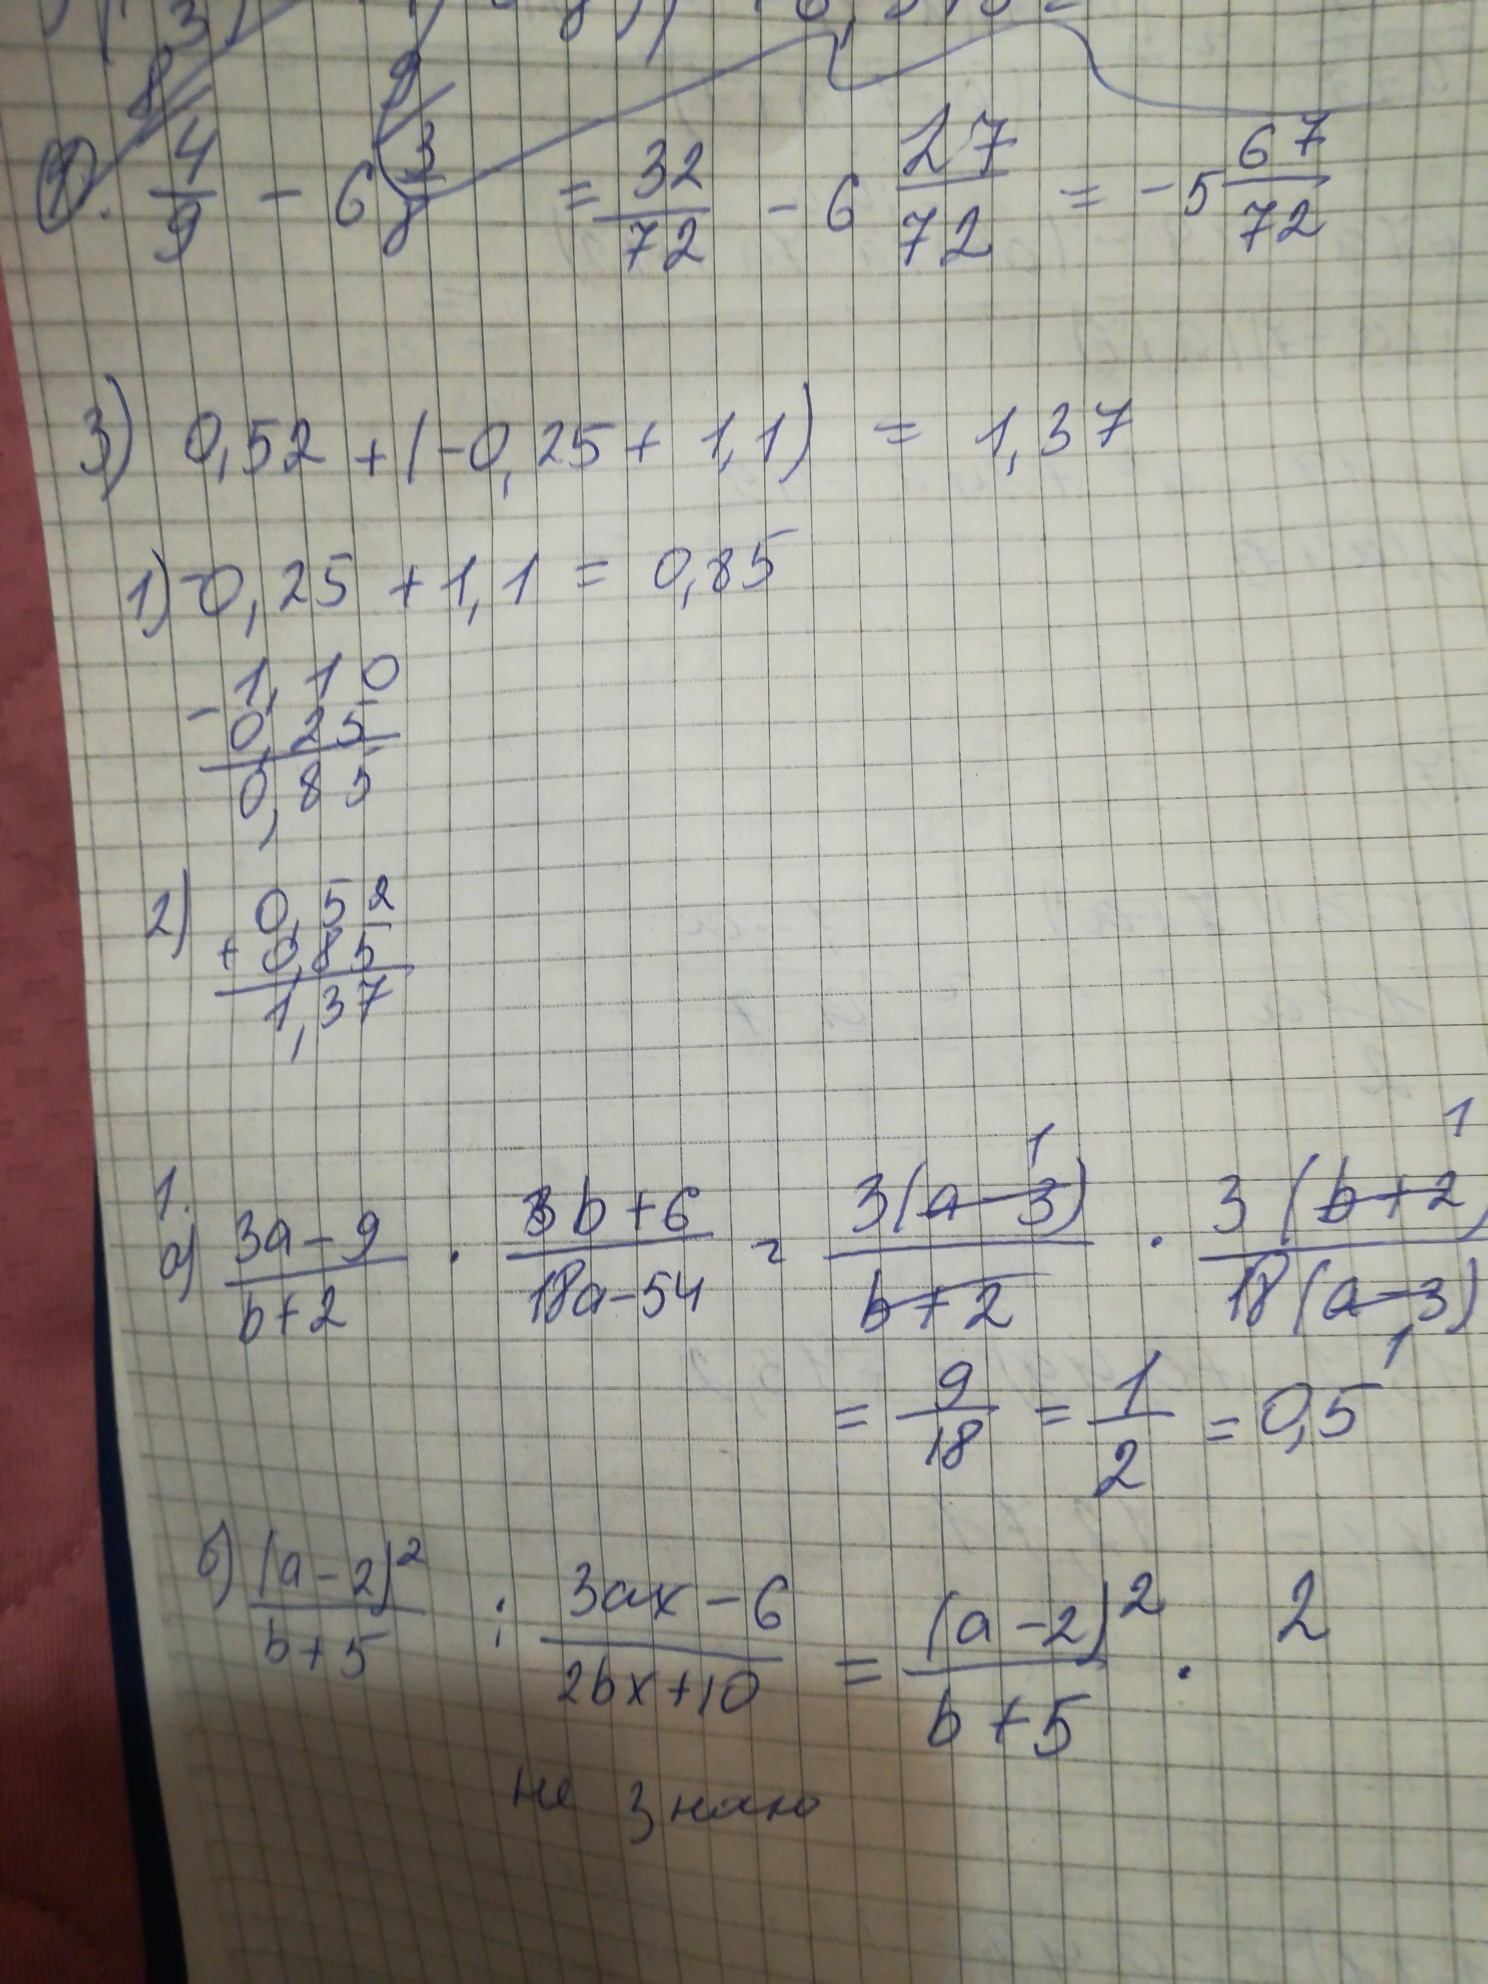 4/9 - 6 3/8 = 32/72 - 6 27/72 = -5 67/72
3) 0,52 + (-0,25 + 1,1) = 1,37
1) -0,25 + 1,1 = 0,85
- 1,10
0,25
0,85
2) 0,52
+ 0,85
1,37
1.
а) (3a-9)/(b+2) · (3b+6)/(18a-54) = 3(a-3)/(b+2) · 3(b+2)/18(a-3)
= 9/18 = 1/2 = 0,5
б) (a-2)²/(b+5) : (3ax-6)/(2bx+10) = (a-2)²/(b+5) · 2
не знаю